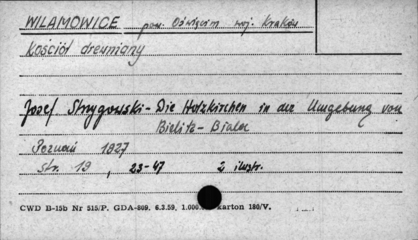 WILAMOWICE pow. Oświęcim woj. Kraków
Kościół drewniany
Josef Strzygowski - Die Holzkirchen in der Umgebung von
Bielitz-Biala
Poznań 1927
str. 19, 23-47 2 ilustr.
CWD B-15b Nr 515/P. GDA-809. 6.3.59. 1.000. karton 180/V.